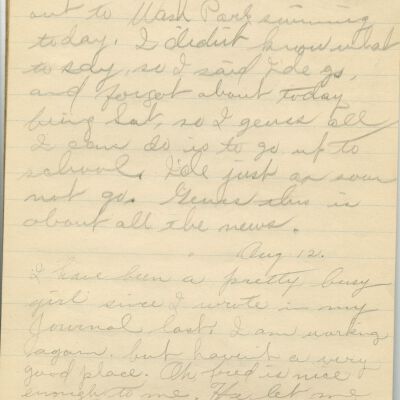 out to Wash Park swimming
today. I didn't know what
to say, so I said I'de go,
and forgot about today
being Sat, so I geuss all
I can do is to go up to
school. I'de just as soon
not go. Geuss this is
about all the news.
Aug 12.
I have been a pretty busy
girl since I wrote in my
Journal last. I am working
again, but haven't a very
good place. Oh Fred is nice
enough to me. Ha let me